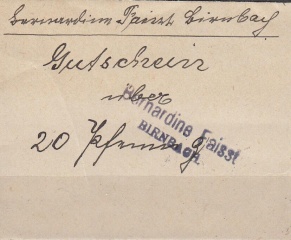 Bernardine Faisst Birnbach
Gutschein
über
20 Pfennig
Bernardine Faisst
BIRNBACH.